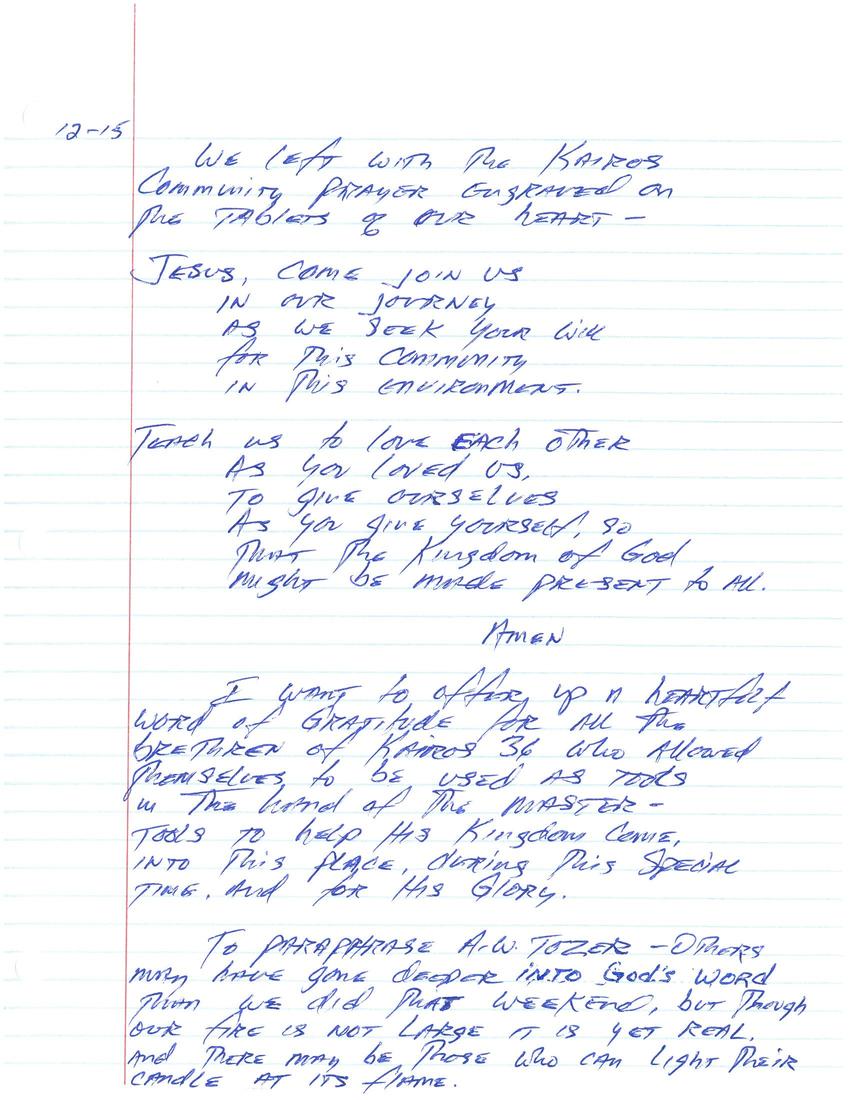 12-15
We left with the Kairos
Community Prayer engraved on
the tablets of our heart –
Jesus, come join us
in our journey
as we seek your will
for this community
in this environment.
Teach us to love each other
as you loved us,
to give ourselves
as you give yourself, so
that the Kingdom of God
might be made present to all.
Amen
I want to offer up a heartfelt
word of gratitude for all the
brethren of Kairos 36 who allowed
themselves to be used as tools
in the hand of the Master –
tools to help His Kingdom come,
into this place, during this special
time. And for His Glory.
To paraphrase A.W. Tozer – Others
may have gone deeper into God's word
than we did that weekend, but though
our fire is not large it is yet real.
And there may be those who can light their
candle at its flame.